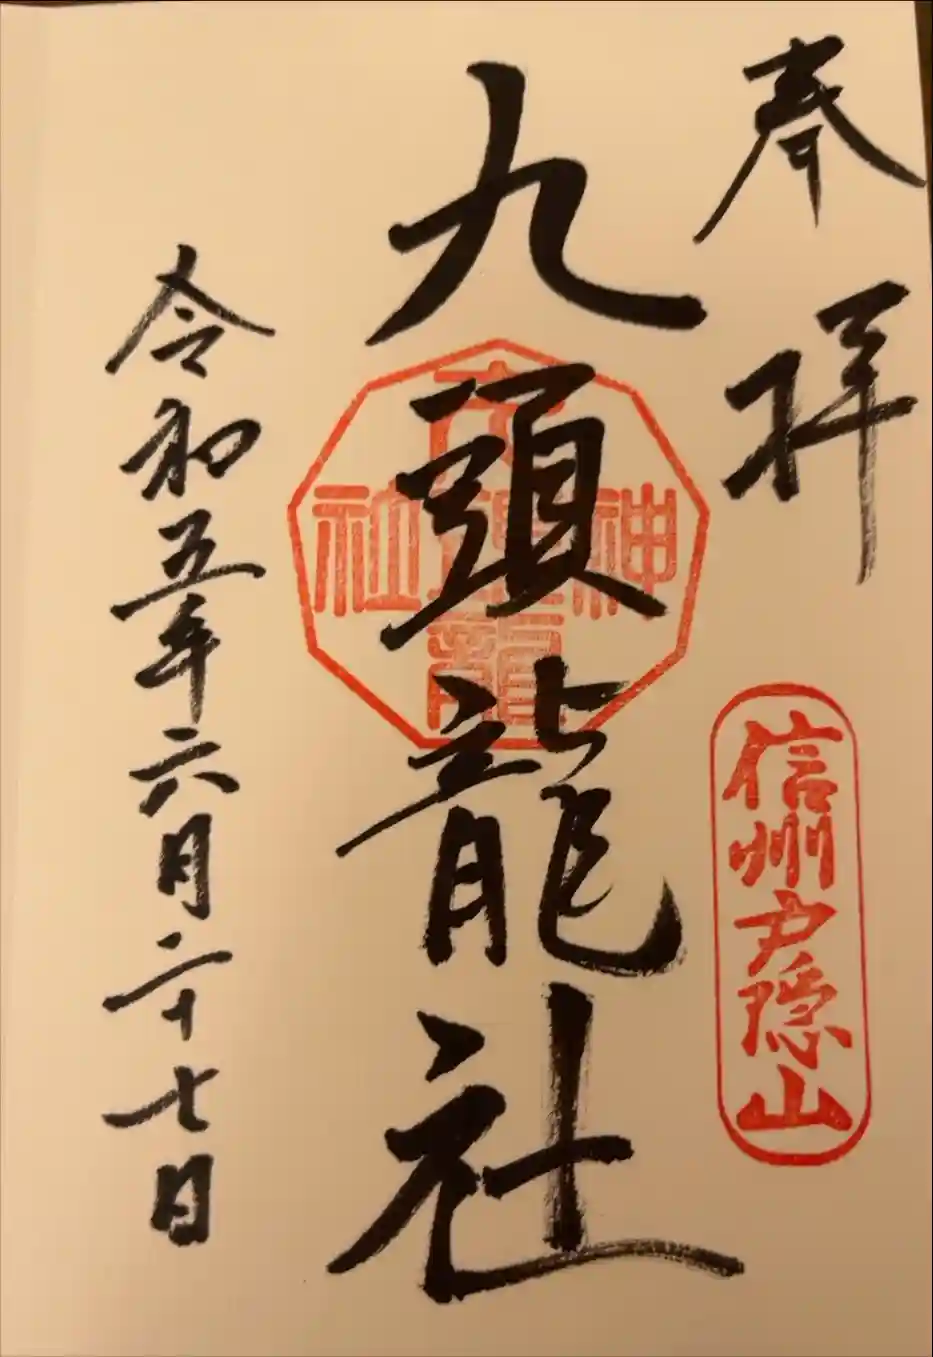 奉拝
信州戸隠山
九頭龍社
九頭龍神社
令和五年六月二十七日